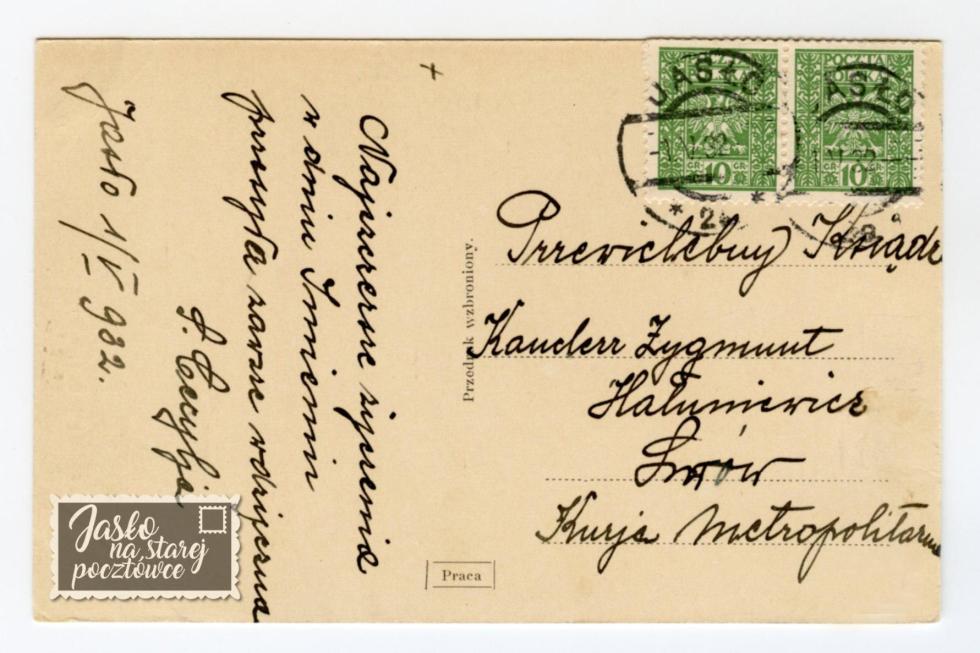 +
Najszczersze życzenia
w dniu Imienin
przesyła zawsze wdzięczna
S. Cecylja
Jasło 1/V 932.
Przedruk wzbroniony.
Praca
POCZTA
10 GR
GR 10
JASŁO
JASŁO
Przewielebny Ksiądz
Kanclerz Zygmunt
Hałuniewicz
Lwów
Kurja Metropolitarna
Jasło
na starej
pocztówce